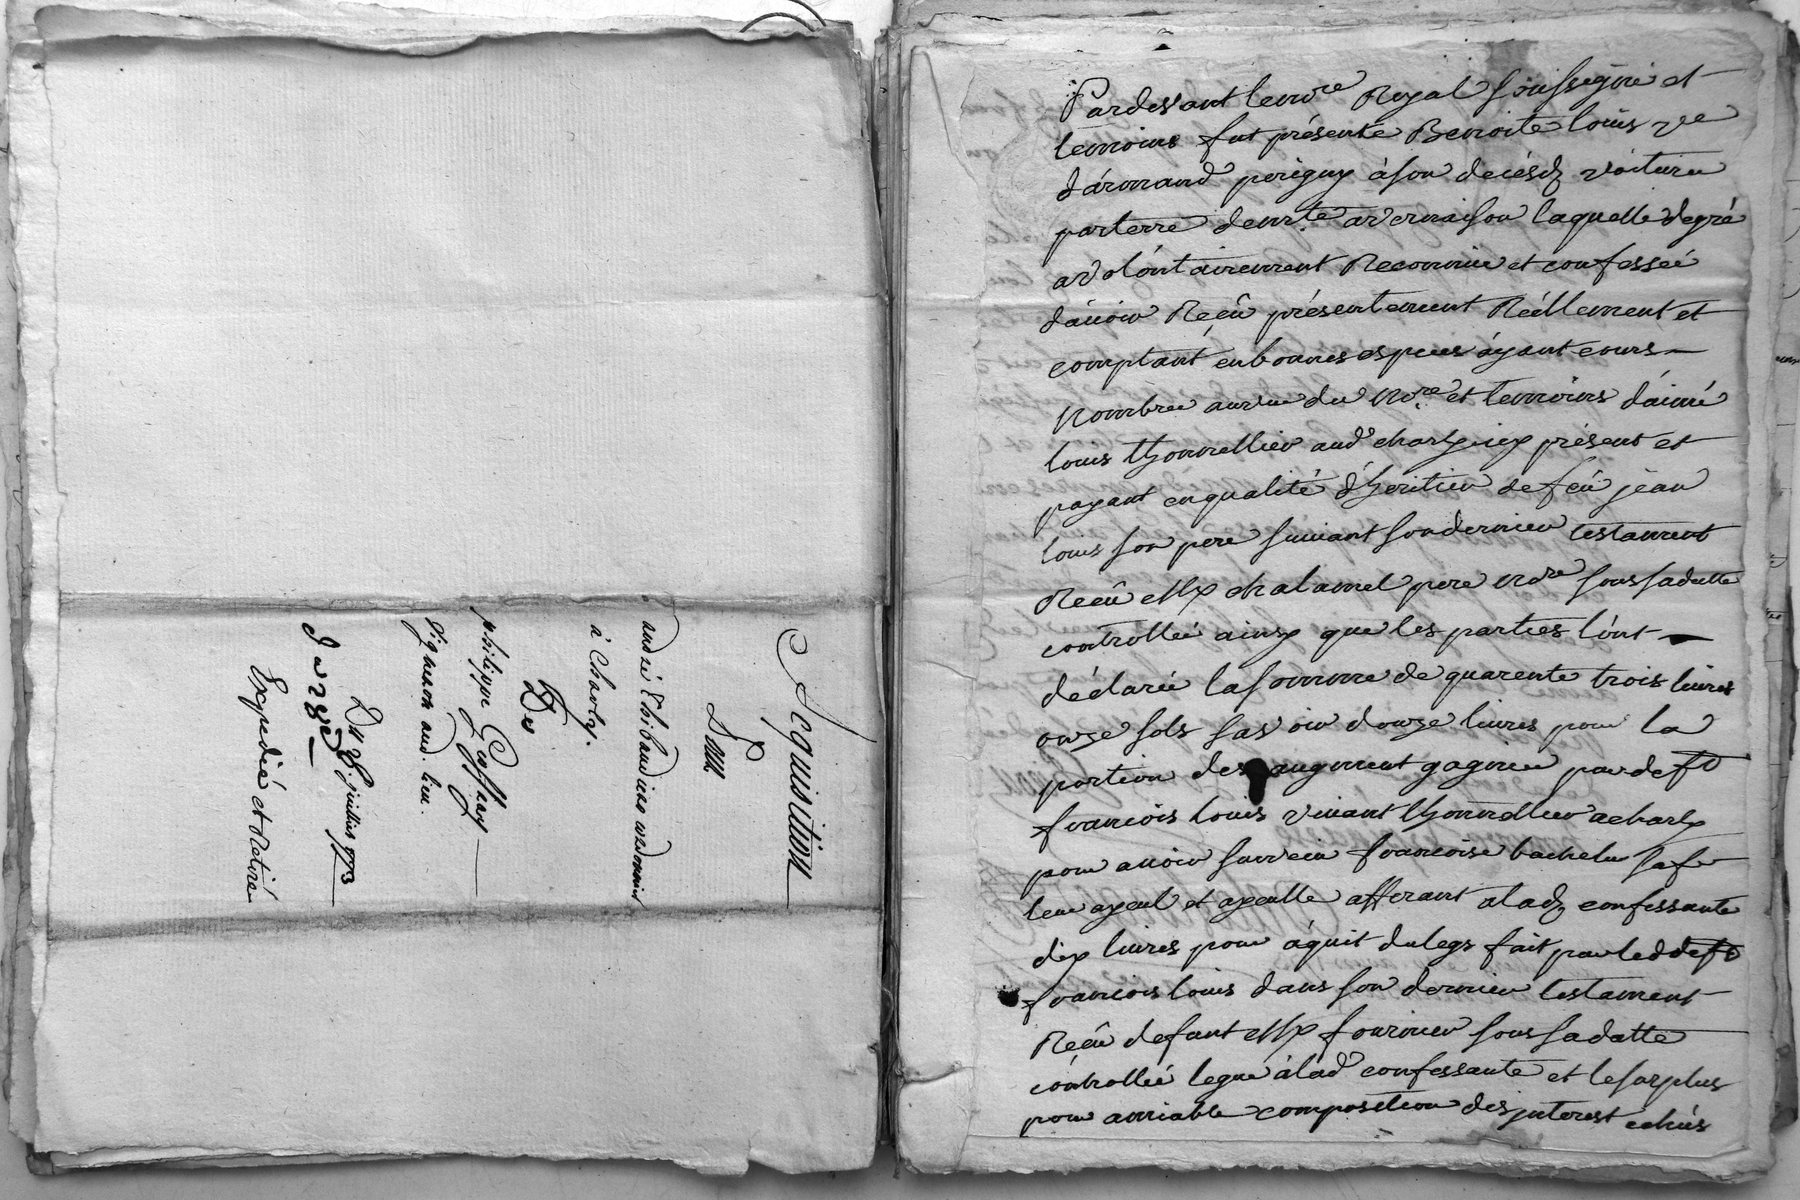 Acquisition
Pour
andré Thibaud
à Charly.
De
philippe Goffray
vigneron aud. lieu.
Du 8e juillet 1773
Expediée et Retirée
Pardevant le nore Royal soussigné et
temoins fut présente Benoite louis vve
d'armand perigny à son decés voiturier
par terre demt. a vernaison laquelle de gré
a volontairement Reconnue et confessée
d'avoir Reçû présentement Réellement et
comptant en bonnes especes ayant cours
Nombrée au vue du Nore et temoins d'aimé
louis thonnellier aud charly icy présent et
payant en qualité d'heritier de feu jean
louis son pere suivant son dernier testament
Reçû Me chalamel pere Nore sous sa datte
controllée ainsy que les parties l'ont
déclarée la somme de quarente trois livres
onze sols savoir douze livres pour la
portion des augment gagnée par deft
francois louis vivant thonnellier a charly
pour avoir survecu francoise bachelu sa fe
leur ayeul et ayeulle afferant a lad. confessante
dix livres pour aquit du legs fait par led deft
francois louis dans son dernier testament
Reçû defunt Me fournier sous sa datte
controllée legué à lad confessante et le surplus
pour amiable composition des interest echus